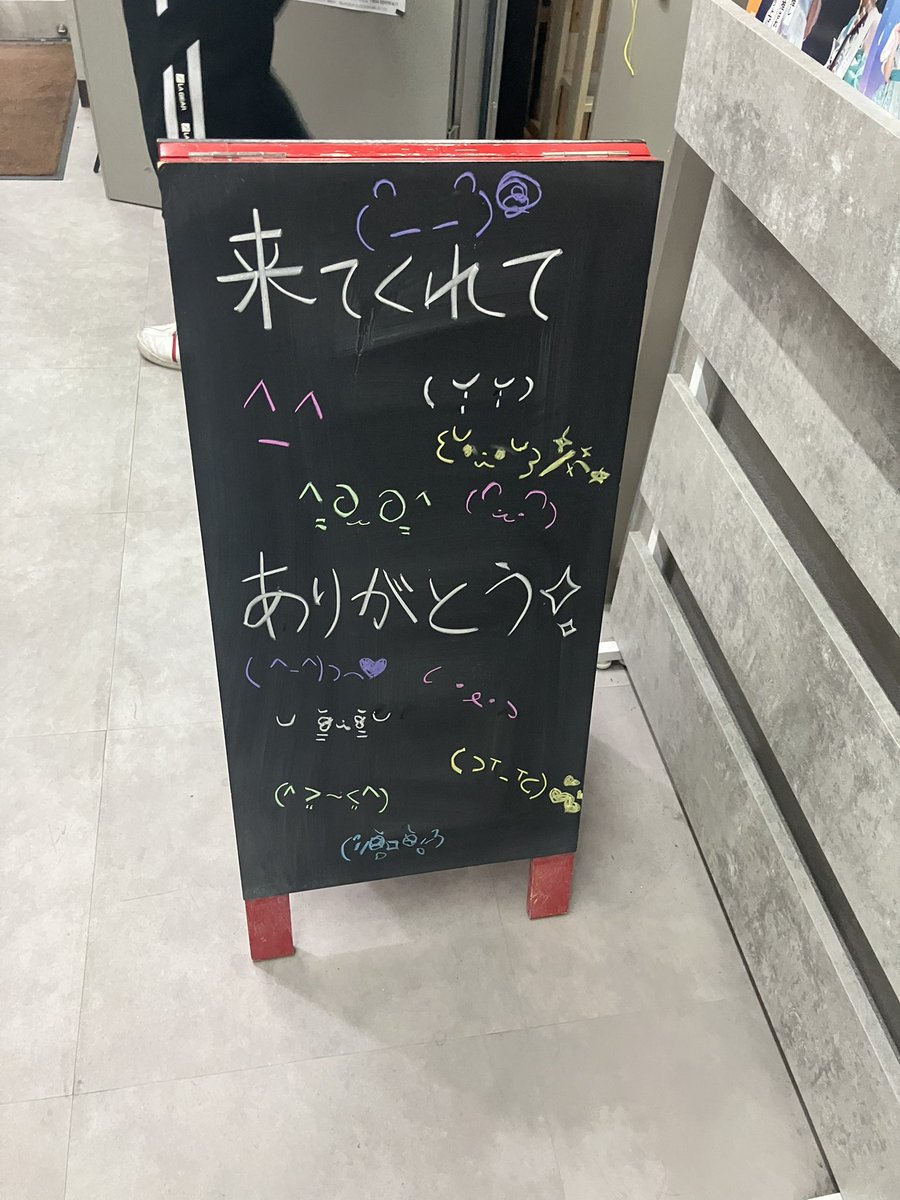 LA GEAR
来てくれて
^ ^
_
ありがとう
( ^-^)
(^ ≧~≦^)